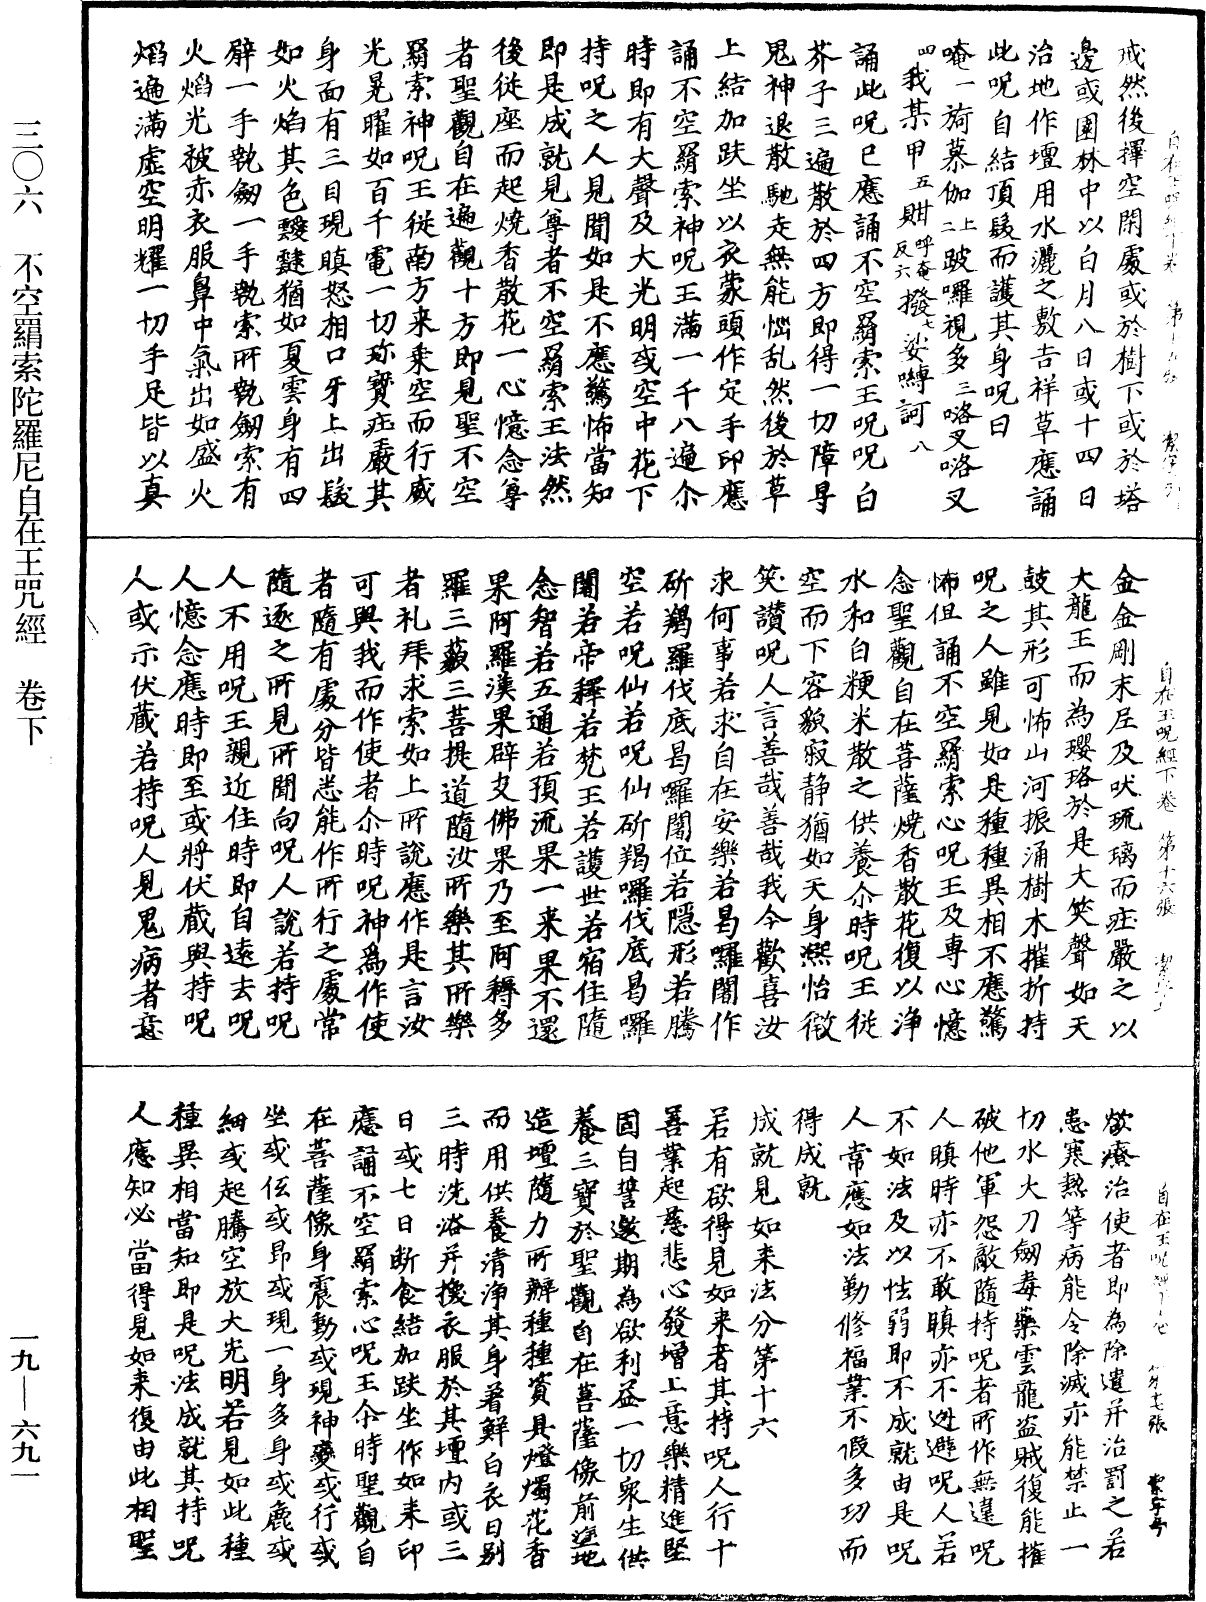 三〇六　不空羂索陀羅尼自在王咒經　卷下
一九—六九一
戒然後擇空閑處或於樹下或於塔
邊或園林中以白月八日或十四日
治地作壇用水灑之敷吉祥草應誦
此呪自結頂髮而護其身呪曰
唵一旖慕伽二上跛囉視多三嗠叉嗠叉
四我某甲五㪷呼奄反六撥七娑嚩訶八
誦此呪已應誦不空羂索王呪呪白
芥子三遍散於四方即得一切障㝵
鬼神退散馳走無能惱乱然後於草
上結加趺坐以衣蒙頭作定手印應
誦不空羂索神呪王滿一千八遍尒
時即有大聲及大光明或空中花下
持呪之人見聞如是不應驚怖當知
即是成就見尊者不空羂索王法然
後從座而起燒香散花一心憶念尊
者聖觀自在遍觀十方即見聖不空
羂索神呪王從南方来乘空而行威
光晃曜如百千電一切珎寶莊嚴其
身面有三目現瞋怒相口牙上出髮
如火焰其色靉靆猶如夏雲身有四
臂一手執劒一手執索所執劒索有
火焰光被赤衣服鼻中氣出如盛火
焰遍滿虛空明耀一切手足皆以真
自在王呪經下卷　第十六張
金金剛末尼及吠瑠璃而莊嚴之以
大龍王而為瓔珞於是大笑聲如天
鼓其形可怖山河振涌樹木摧折持
呪之人雖見如是種種異相不應驚
怖但誦不空羂索心呪王及專心憶
念聖觀自在菩薩燒香散花復以淨
水和白粳米散之供養尒時呪王從
空而下容貌寂静猶如天身凞怡微
笑讃呪人言善哉善哉我今歡喜汝
求何事若求自在安樂若曷囉闍作
斫羯羅伐底曷囉闍位若隱形若騰
空若呪仙若呪仙斫羯囉伐底曷囉
闍若帝釋若梵王若護世若宿住隨
念智若五通若預流果一来果不還
果阿羅漢果辟支佛果乃至阿耨多
羅三藐三菩提道隨汝所樂其所樂
者礼拜求索如上所說應作是言汝
可與我而作使者尒時呪神為作使
者隨有處分皆悉能作所行之處常
隨逐之所見所聞向呪人說若持呪
人不用呪王親近住時即自遠去呪
人憶念應時即至或將伏藏與持呪
人或示伏藏若持呪人見鬼病者意
欲療治使者即為除遣并治罰之若
患寒熱等病能令除滅亦能禁止一
切水大刀劒毒藥雲龍盗賊復能摧
破他軍怨敵隨持呪者所作無違呪
人瞋時亦不敢瞋亦不迯避呪人若
不如法及以怯弱即不成就由是呪
人常應如法勤修福業不假多功而
得成就
成就見如来法分第十六
若有欲得見如来者其持呪人行十
善業起慈悲心發增上意樂精進堅
固自誓邀期為欲利益一切衆生供
養三寶於聖觀自在菩薩像前塗地
造壇隨力所辦種種資具燈燭花香
而用供養清淨其身著鮮白衣日別
三時洗浴并換衣服於其壇内或三
日或七日斷食結加趺坐作如来印
應誦不空羂索心呪王尒時聖觀自
在菩薩像身震動或現神變或行或
坐或住或昂或現一身多身或麁或
細或起騰空放大光明若見如此種
種異相當知即是呪法成就其持呪
人應知必當得見如来復由此相聖